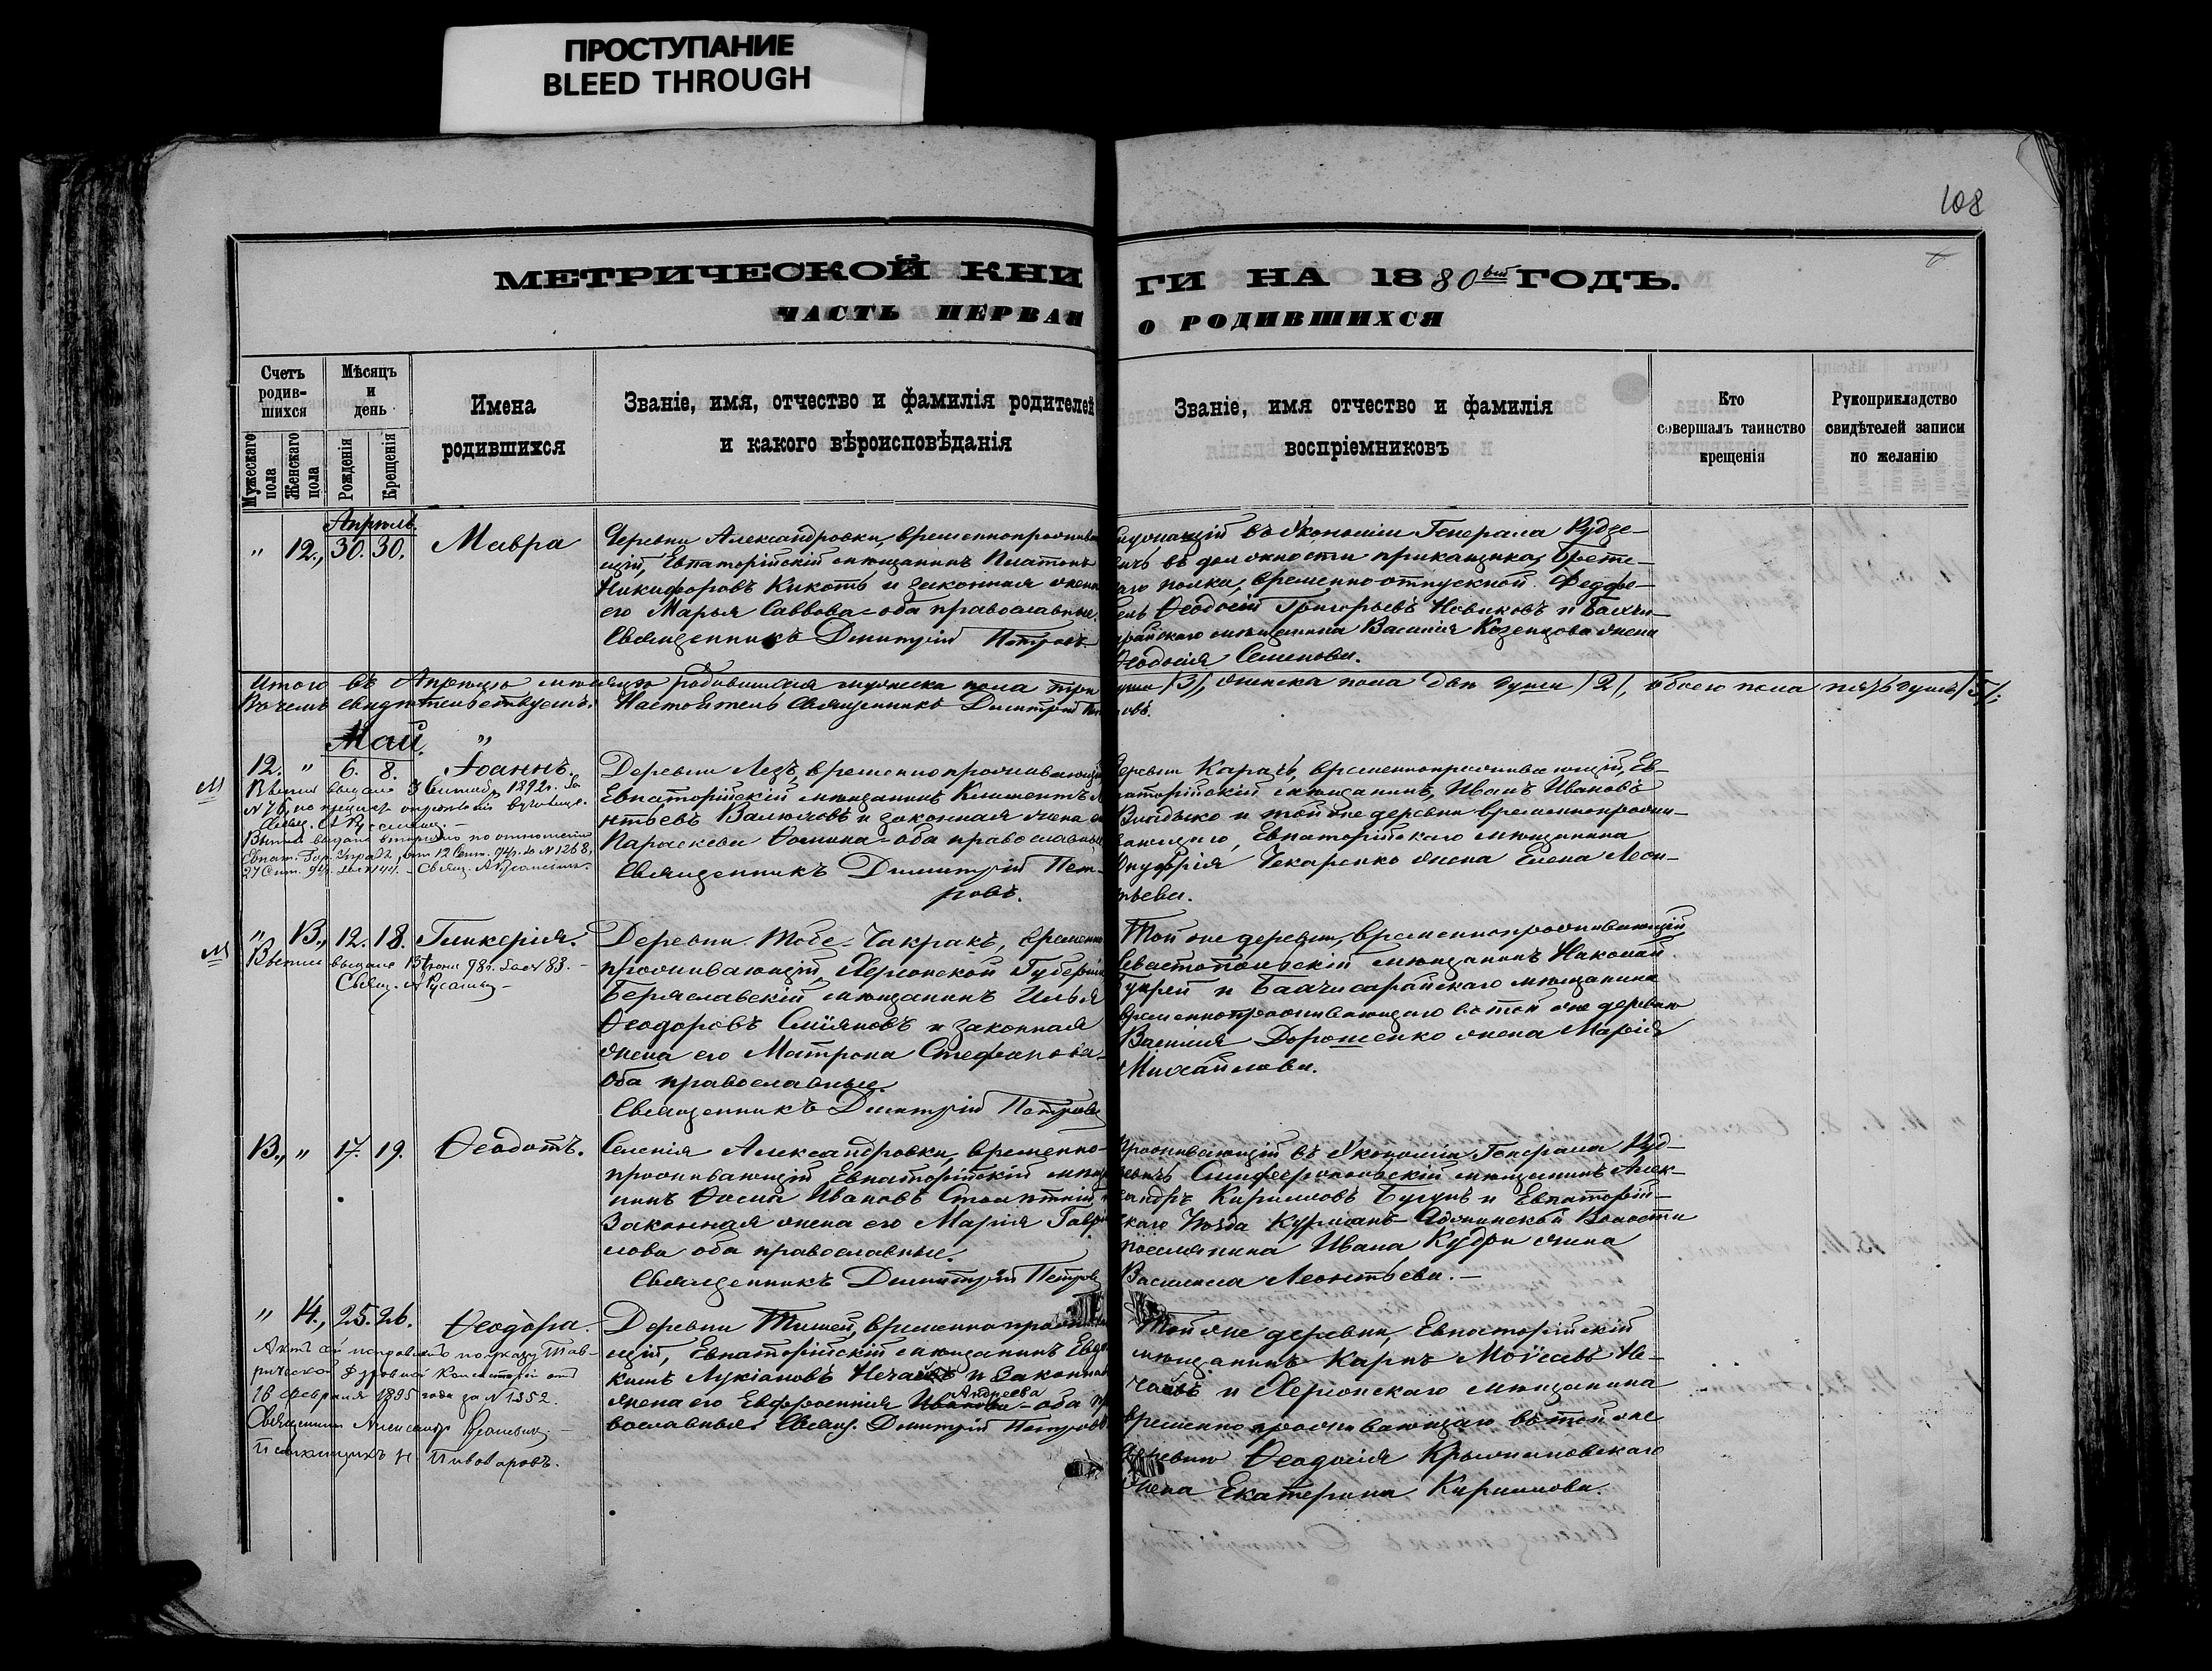 ПРОСТУПАНИЕ
BLEED THROUGH
108
МЕТРИЧЕСКОЙ КНИ
ГИ НА 1880 ый ГОДЪ.
ЧАСТЬ ПЕРВАЯ
О РОДИВШИХСЯ
Счетъ родив-шихся
Мужескаго пола
Женскаго пола
Мѣсяцъ и день
Рожденія
Крещенія
Имена родившихся
Званіе, имя, отчество и фамилія родителей
и какого вѣроисповѣданія
Званіе, имя отчество и фамилія
воспріемниковъ
Кто совершалъ таинство крещенія
Рукоприкладство свидѣтелей записи по желанію
Апрѣль.
" 12., 30. 30. Мавра
Деревни Александровки, временнопрожива
ющій, Евпаторійскій мѣщанинъ Платонъ
Никифоровъ Кикоть и законная жена
его Марья Саввова - оба православные.
Священникъ Димитрій Петровъ
въ Экономіи Генерала Рудзе-
вичъ въ должности прикащика, Брестс-
каго полка, временно-отпускной Фельдфе-
бель Ѳеодосій Григорьевъ Новиковъ и Бахчи-
сарайскаго мѣщанина Василія Козенцова жена
Ѳеодосія Семенова.
Итого въ Апрѣлѣ мѣсяцѣ родившихся мужеска пола три души /3/, женска пола двѣ души /2/, обоего пола пять душъ /5/.
Въ чемъ свидѣтельствуетъ: Настоятель Священникъ Димитрій Петровъ.
Май. "
12. " 6. 8. Іоаннъ.
М
Вѣтія выдана 3 Сентяб. 1892 г. за
№ 76, по
Вѣтія выдана вторично по отношенію
Евпат. Гор. Управы, отъ 12 Сент. 94 г. за № 1268,
27 Сент. 94 г. за № 144. - Свящ. А Русаневичъ
Деревни Лезъ, временнопроживающій
Евпаторійскій мѣщанинъ Климентъ Ле
нтьевъ Валюховъ и законная жена его
Параскева Ѳомина - оба православные
Священникъ Димитрій Пет-
ровъ.
Деревни Карачъ, временнопроживающій, Ев-
паторійскій мѣщанинъ, Иванъ Ивановъ
Владыко и той же деревни временнопрожи-
вающаго, Евпаторійскаго мѣщанина
Онуфрія Чекаренко жена Елена Леон-
тьева.
" 13., 12. 18. Гликерія.
М
Вѣтія выдана 13 Іюня 98 г. за № 83. -
Свящ. А Русаневичъ -
Деревни Тобе-Чакракъ, временно
проживающій, Херсонской Губерніи
Бериславскій мѣщанинъ Илья
Ѳеодоровъ Сміяновъ и законная
жена его Матрона Стефанова -
оба православные.
Священникъ Димитрій Петровъ
Той же деревни, временнопроживающій
Севастопольскій мѣщанинъ Николай
и Бахчисарайскаго мѣщанина
временнопроживающаго въ той же деревнѣ
Василія Дорошенко жена Марія
Михайлова.
13., " 17. 19. Ѳеодотъ.
Селенія Александровки, временно-
проживающій Евпаторійскій мѣща
нинъ Ѳома Ивановъ Столѣтній и
Законная жена его Марія Гаври
лова оба православные.
Священникъ Димитрій Петровъ
Проживающій въ Экономіи Генерала Руд-
зевичъ Симферопольскій мѣщанинъ Алек-
сандръ Кирилловъ Бугунъ и Евпаторій-
скаго Уѣзда Курманъ-Аджинской Волости
поселянина Ивана Кудри жена
Василиса Леонтьева. -
" 14., 25. 26. Ѳеодора.
Актъ сей исправленъ по указу Тав-
рической Духовной Консисторіи отъ
16 февраля 1895 года за № 1352.
Священникъ Александръ Русаневичъ -
Псаломщикъ Н Пивоваровъ.
Деревни Тишей, временно прожива
ющій, Евпаторійскій мѣщанинъ Евдо
кимъ Лукіановъ Нечаевъ и Законная
жена его Евфросинія Иванова Андреева - оба пра
вославные. Свящ. Димитрій Петровъ
Той же деревни, Евпаторійскій
мѣщанинъ Карпъ Моѵсеевъ Не-
чаевъ и Херсонскаго мѣщанина
временно проживающаго въ той же
деревнѣ Ѳеодосія Крыжановскаго
жена Екатерина Кириллова.